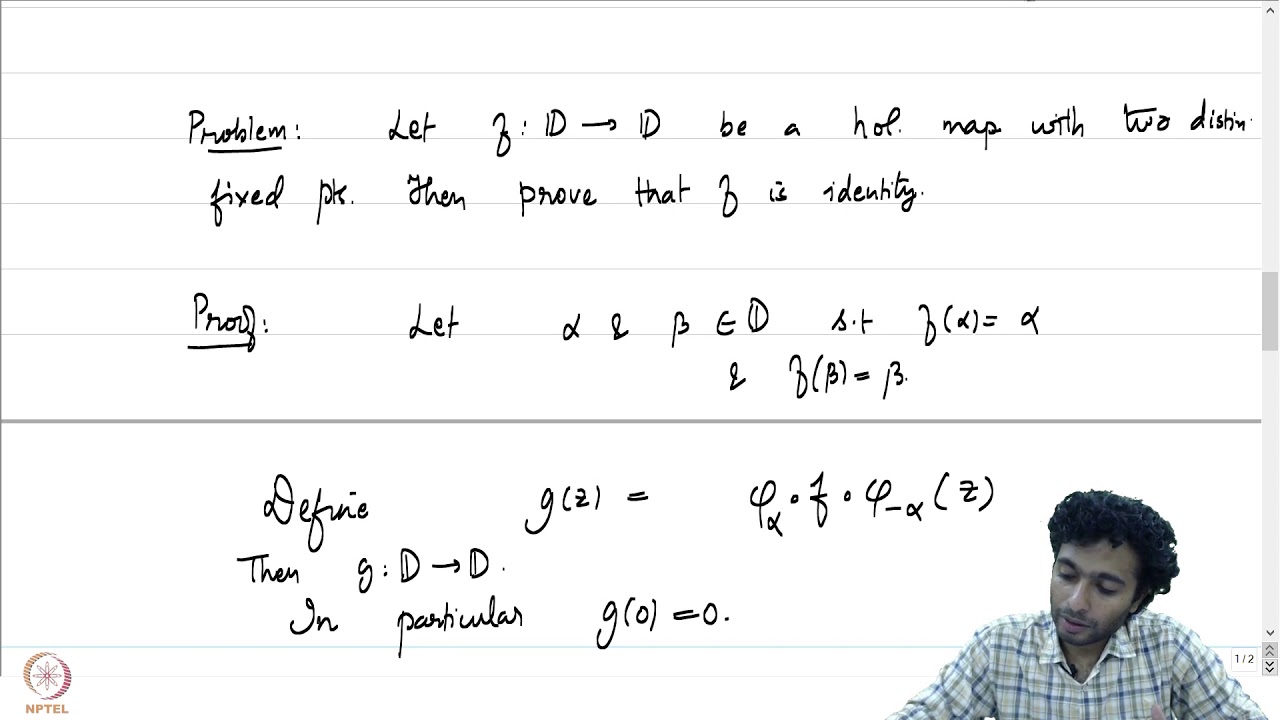 Problem: Let f : 𝔻 → 𝔻 be a hol. map with two distin.
fixed pts. Then prove that f is identity.
Proof: Let α & β ∈ 𝔻 s.t f(α) = α
& f(β) = β.
Define g(z) = φ_α ∘ f ∘ φ_{-α}(z)
Then g : 𝔻 → 𝔻.
In particular g(0) = 0.
1 / 2
NPTEL